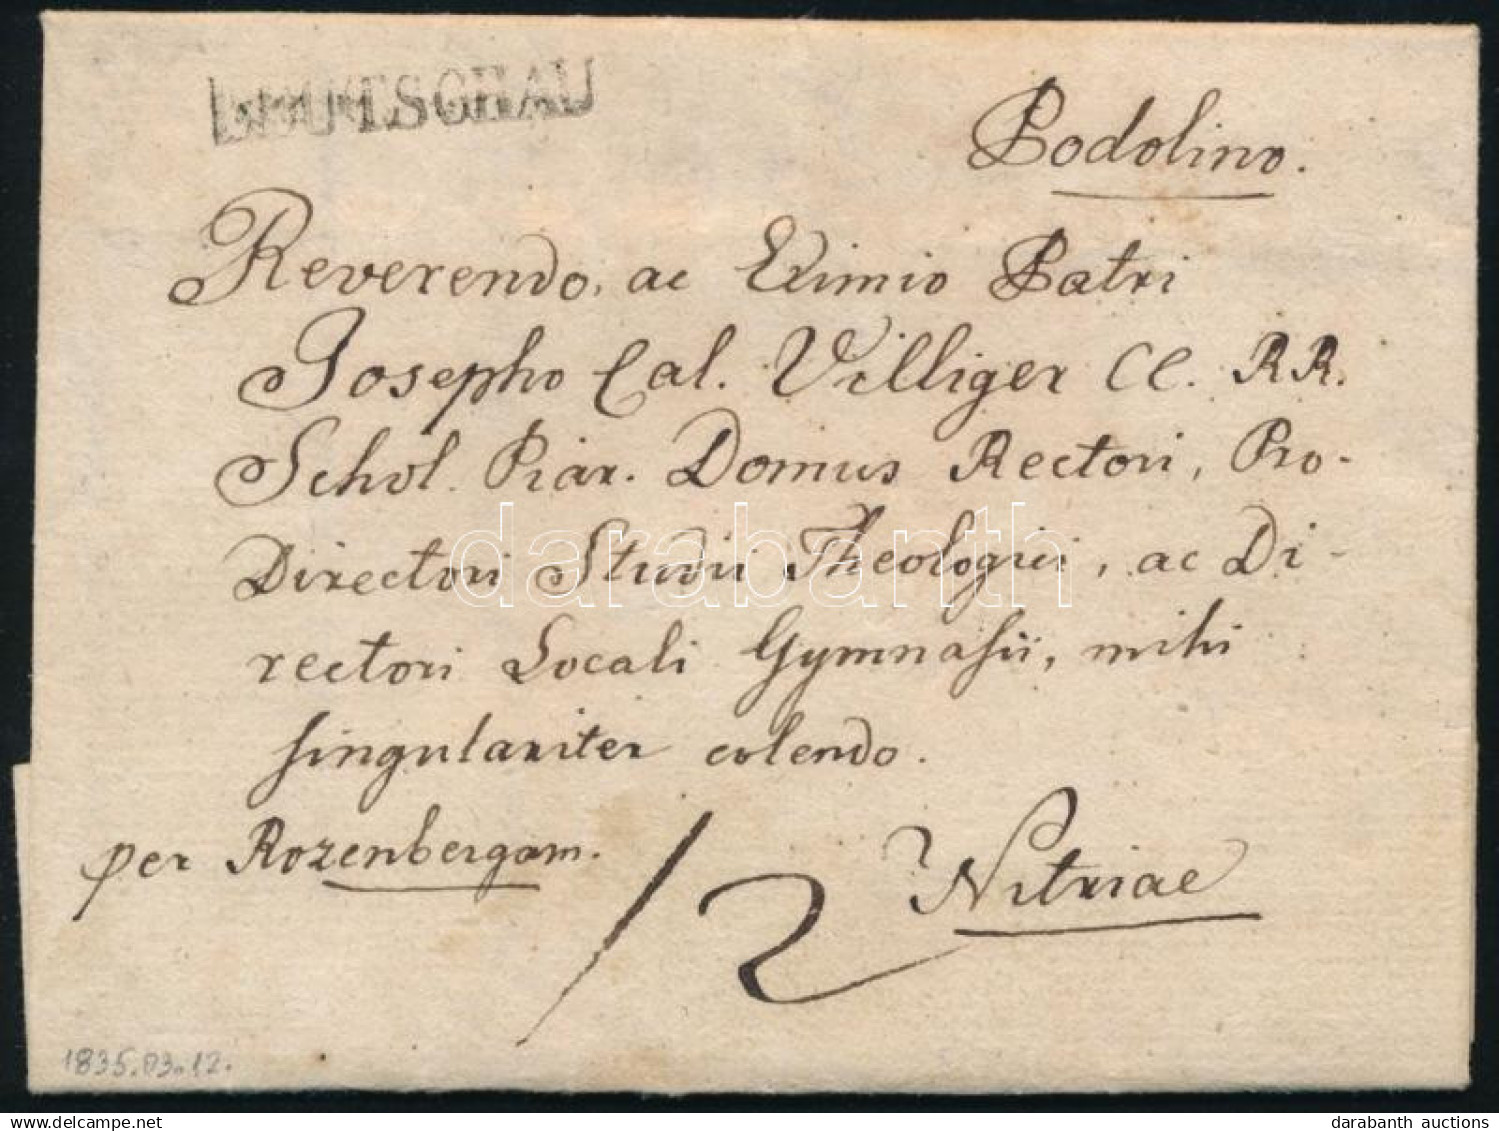 LEUTSCHAU
Podolino.
Reverendo, ac Eximio Patri
Josepho Cal. Villiger CC. RR.
Schol. Piar. Domus Rectori, Pro-
Directori Studii Theologici, ac Di-
rectori Locali Gymnasii, mihi
singulariter colendo.
per Rozenbergam.
12
Nitriae
1835.03.12.
darabanth
darabanth auctions